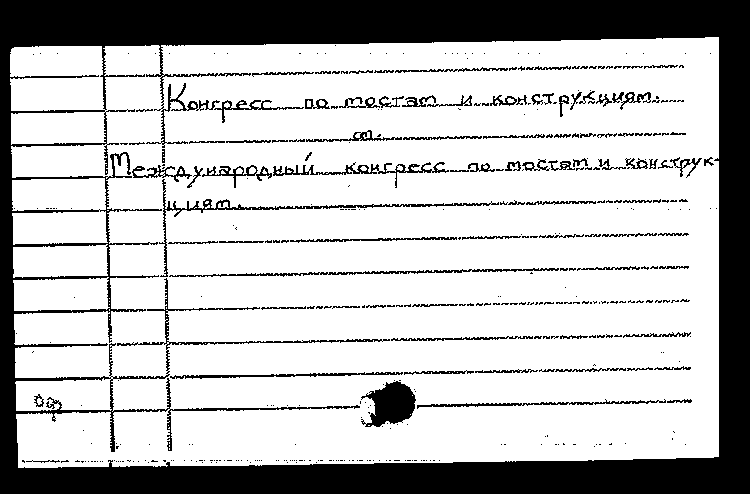 Конгресс по мостам и конструкциям.
см.
Международный конгресс по мостам и конструк-
циям.